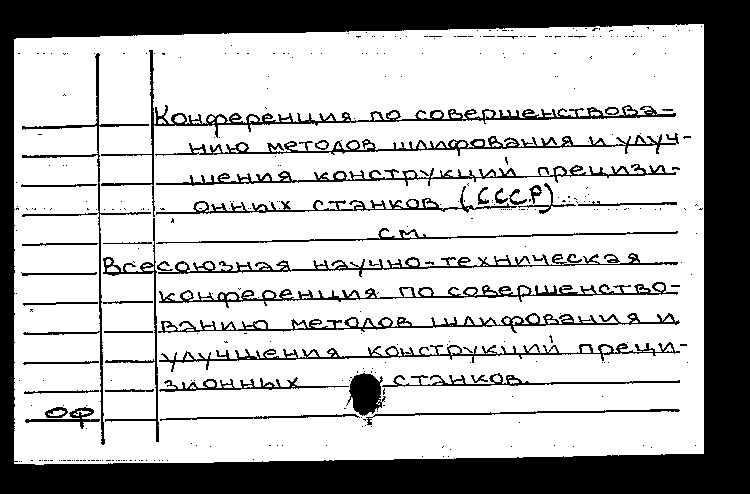 Конференция по совершенствова-
нию методов шлифования и улуч-
шения конструкций прецизи-
онных станков (СССР)
см.
Всесоюзная научно-техническая
конференция по совершенство-
ванию методов шлифования и
улучшения конструкций преци-
зионных станков.
оф